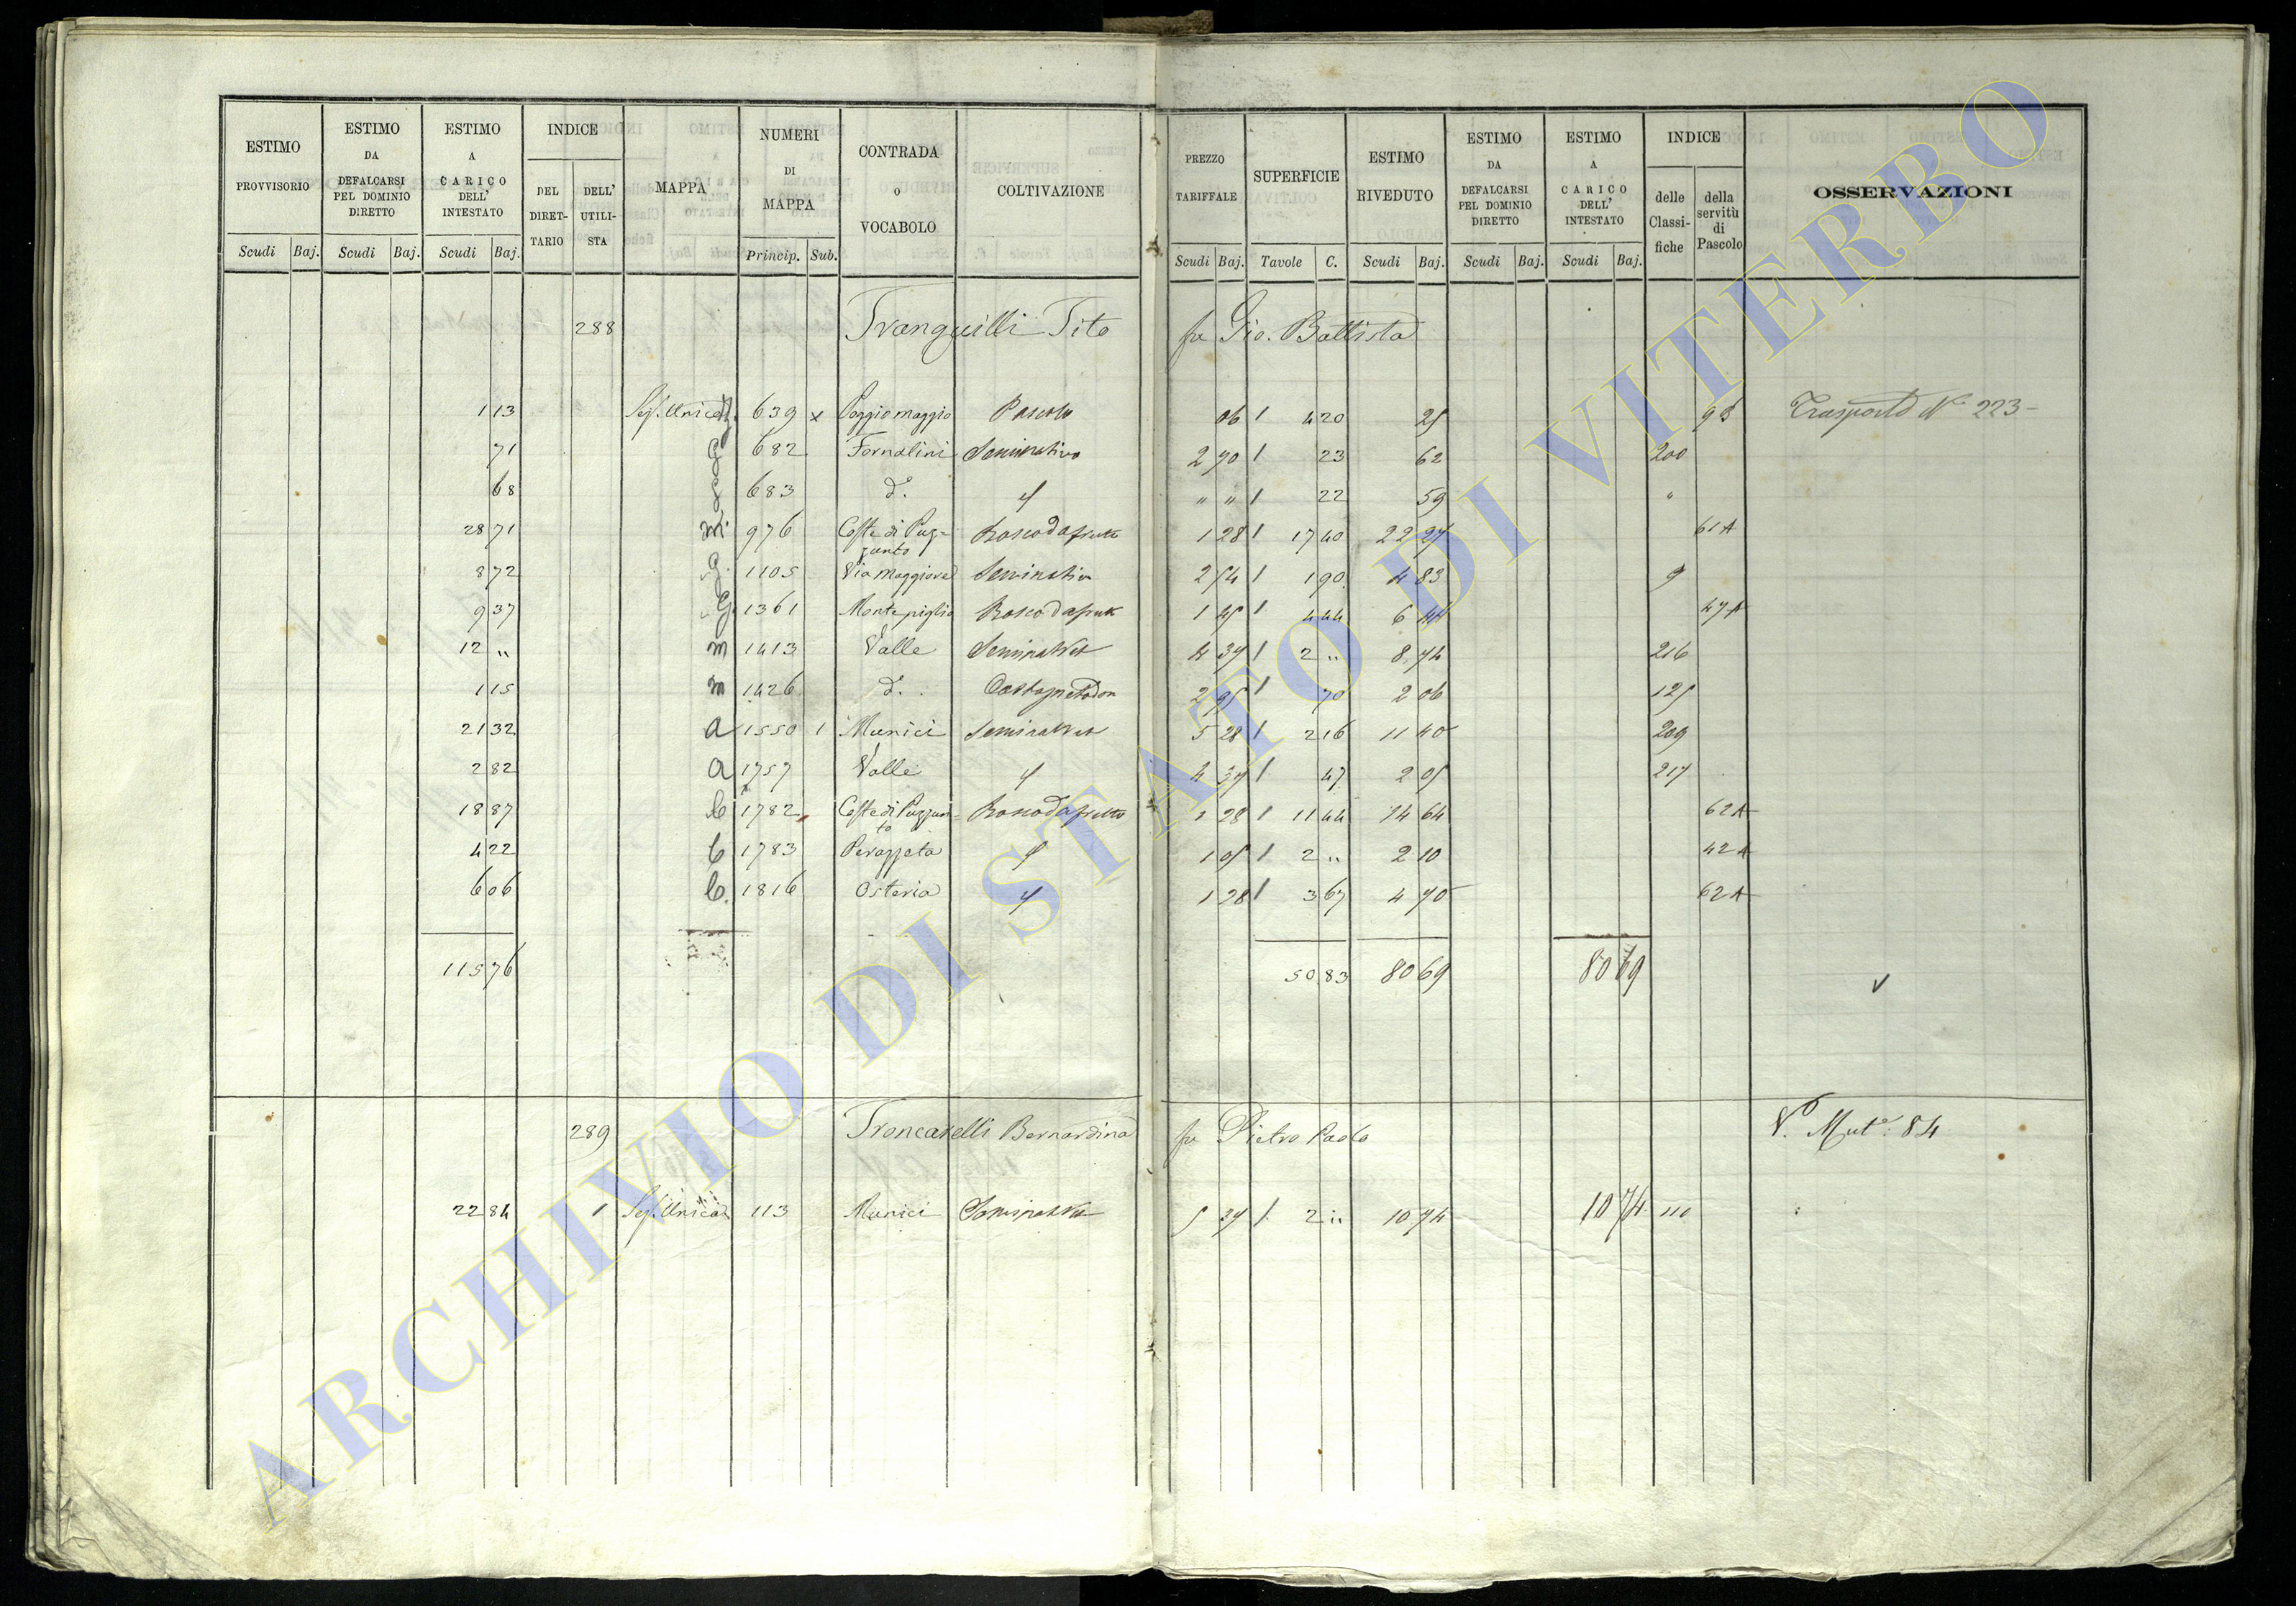 ESTIMO PROVVISORIO | ESTIMO DA DEFALCARSI PEL DOMINIO DIRETTO | ESTIMO A CARICO DELL' INTESTATO | INDICE | MAPPA | NUMERI DI MAPPA | CONTRADA O VOCABOLO | COLTIVAZIONE | PREZZO TARIFFALE | SUPERFICIE | ESTIMO RIVEDUTO | ESTIMO DA DEFALCARSI PEL DOMINIO DIRETTO | ESTIMO A CARICO DELL' INTESTATO | INDICE | OSSERVAZIONI
DEL DIRET-TARIO | DELL' UTILI-STA | delle Classi-fiche | della servitù di Pascolo
Scudi | Baj. | Scudi | Baj. | Scudi | Baj. | Princip. | Sub. | Scudi | Baj. | Tavole | C. | Scudi | Baj. | Scudi | Baj. | Scudi | Baj.
288 Tranquilli Tito fu Gio. Battista
1 13 | Sez. Unica | 639 x | Poggio maggio | Pascolo | 06 1 | 4 20 | 25 | Trasporto N 223 -
71 | G | 682 | Fornalini | Seminativo | 2 70 1 | 23 | 62 | 200
68 | 683 | d. | " " 1 | 22 | 59 | "
28 71 | m. | 976 | Coste di Puz=zunto | Bosco da frutto | 1 28 1 | 17 40 | 22 27 | 61 A
8 72 | G. | 1105 | Via Maggiore | Seminativo | 2 54 1 | 1 90 | 4 83 | 9
9 37 | G | 1361 | Monte piglio | Bosco da frutto | 1 45 1 | 4 44 | 6 44 | 47 A
12 " | m | 1413 | Valle | Seminat Vit | 4 37 1 | 2 " | 8 74 | 216
1 15 | m | 1426 | d. | 2 95 1 | 70 | 2 06 | 125
21 32 | a | 1550 1 | Munici | Seminat Vit | 5 28 1 | 2 16 | 11 40 | 209
2 82 | a | 1757 | Valle | 4 37 1 | 47 | 2 05 | 217
18 87 | b | 1782 | Coste di Puzzun-to | Bosco da frutto | 1 28 1 | 11 44 | 14 64 | 62 A
4 22 | b | 1783 | Perazzeta | 1 05 1 | 2 " | 2 10 | 42 A
6 06 | b. | 1816 | Osteria | 1 28 1 | 3 67 | 4 70 | 62 A
115 76 | 50 83 | 80 69 | 80 69
289 Troncarelli Bernardina fu Pietro Paolo | V. Mut. 84
22 84 | 1 | Sez. Unica | 113 | Munici | Seminat Vit | 5 37 1 | 2 " | 10 74 | 10 74
ARCHIVIO DI STATO DI VITERBO